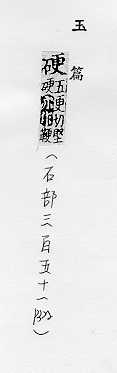 玉篇
硬
五更切堅
硬
鞕
(石部三百五十一